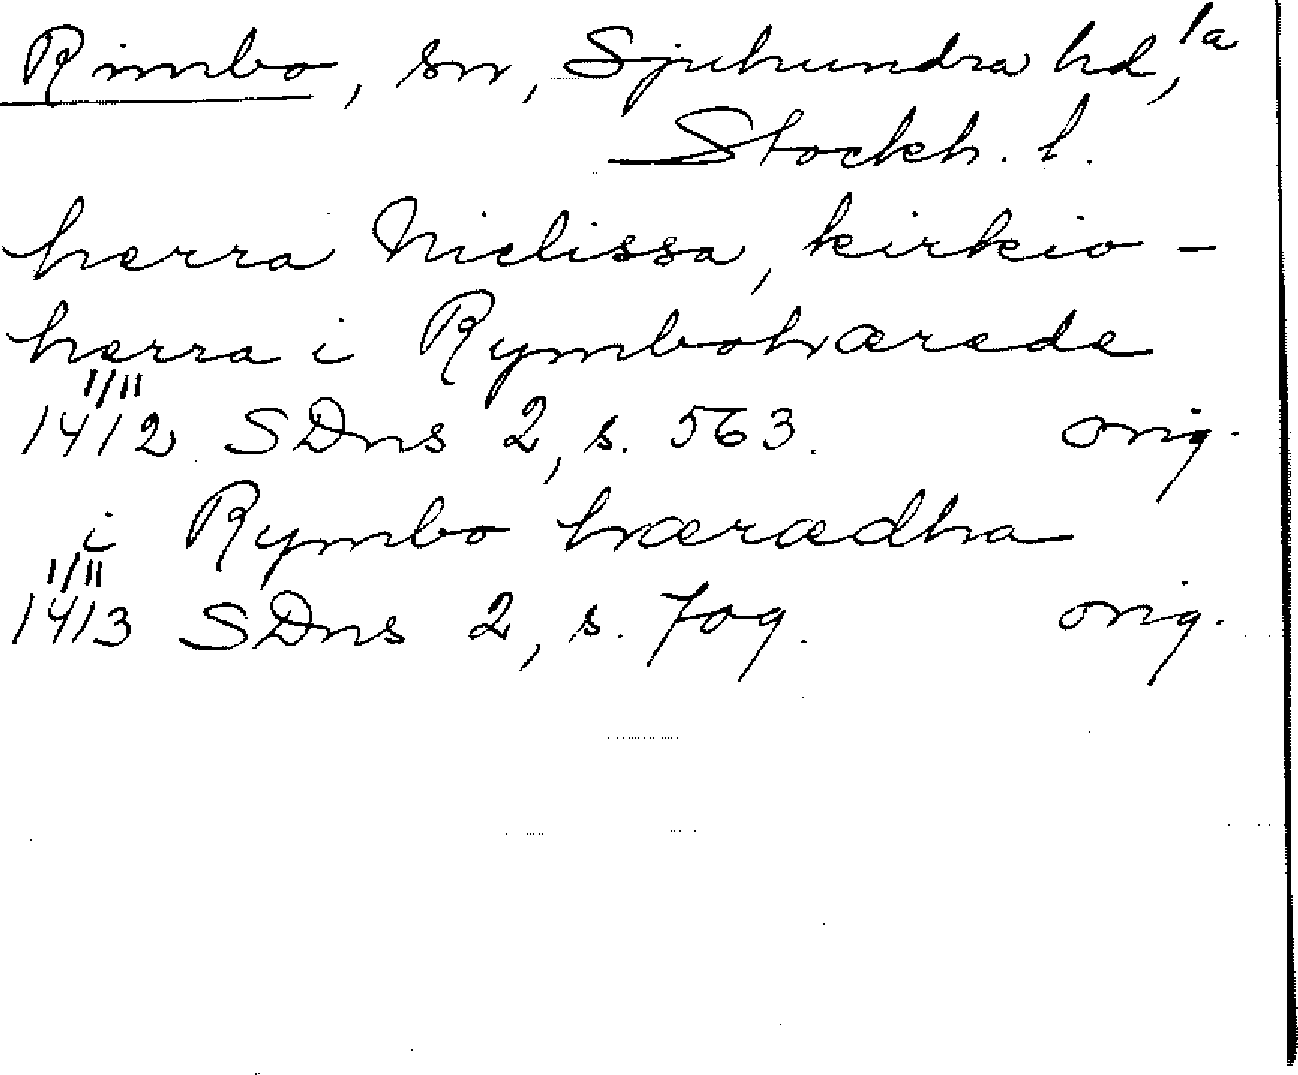 Rimbo, sn, Sjuhundra hd, 1a
Stockh. l.
herra Niclissa, kirkio-
herra i Rymbohærede
1/11
1412 SDns 2, s. 563. orig.
i Rymbo hæradha
1/11
1413 SDns 2, s. 709. orig.